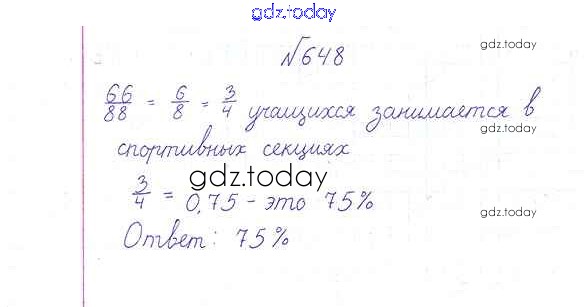 gdz.today
№648
gdz.today
66/88 = 6/8 = 3/4 учащихся занимается в
gdz.today
спортивных секциях
gdz.today
3/4 = 0,75 - это 75%
gdz.today
Ответ: 75%